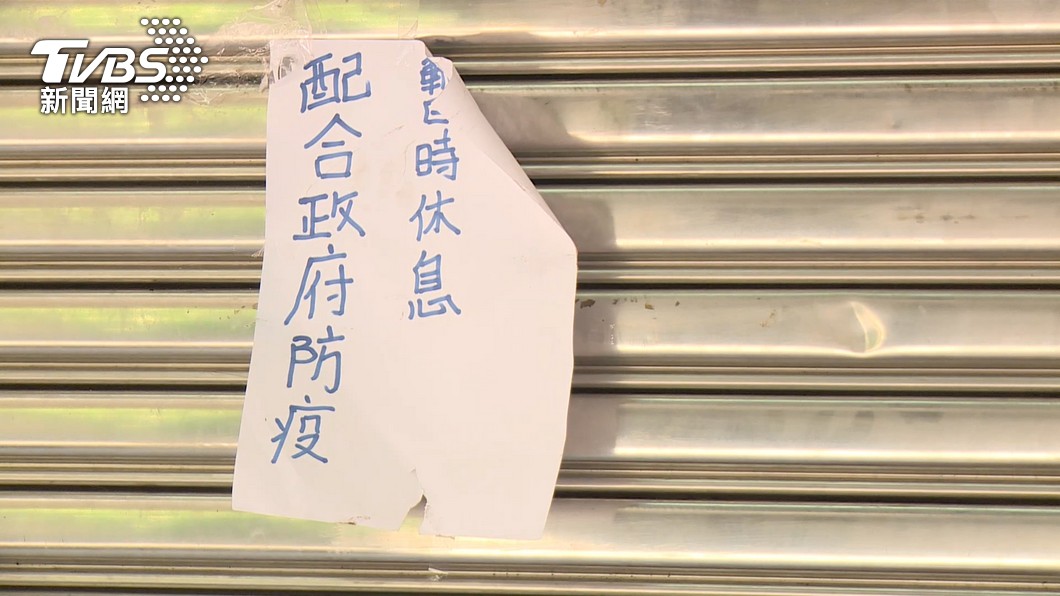 TVBS
新聞網
暫時休息
配合政府防疫